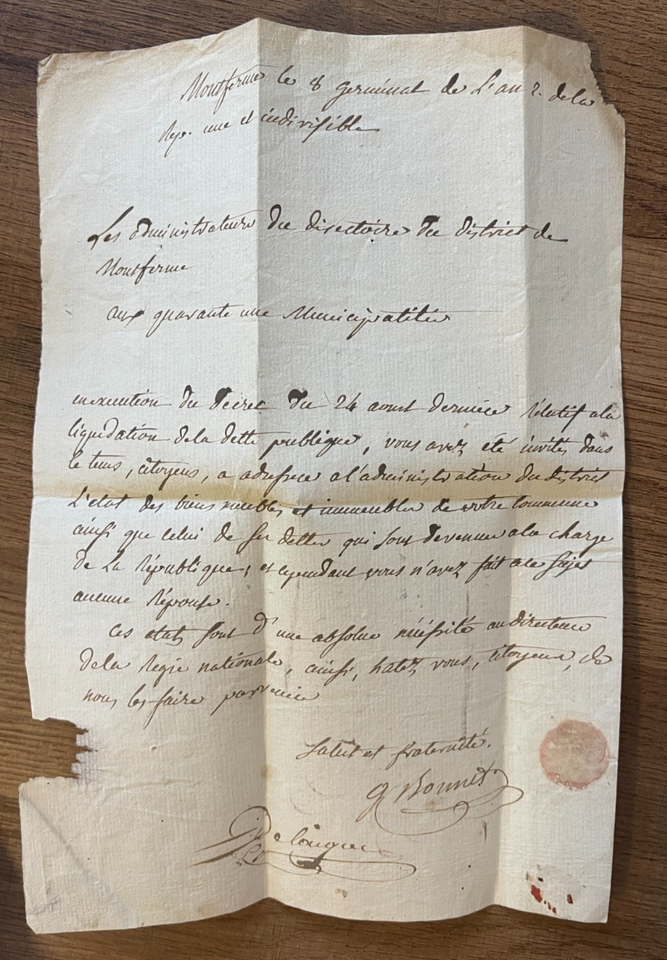 Montferme le 8 germinal de L'an 2. de la
Rep. une et indivisible
Les administrateurs du directoire du district de
Montferme
aux quarante une Municipalités
en execution du décret du 24 aoust dernier relatif a la
liquidation de la dette publique, vous avez été invités dans
le tems, citoyens, a adresser a l'administration du district
L'etat des biens meubles et immeubles de votre commune
ainsi que celui de ses dettes qui sont devenues a la charge
de la République, et cependant vous n'avez fait a ce sujet
aucune réponse.
Ces etats sont d'une absolue nécessité au directeur
de la Regie nationale, ainsi, hatez vous, citoyens, de
nous les faire parvenir
Salut et fraternité.
Bonnet